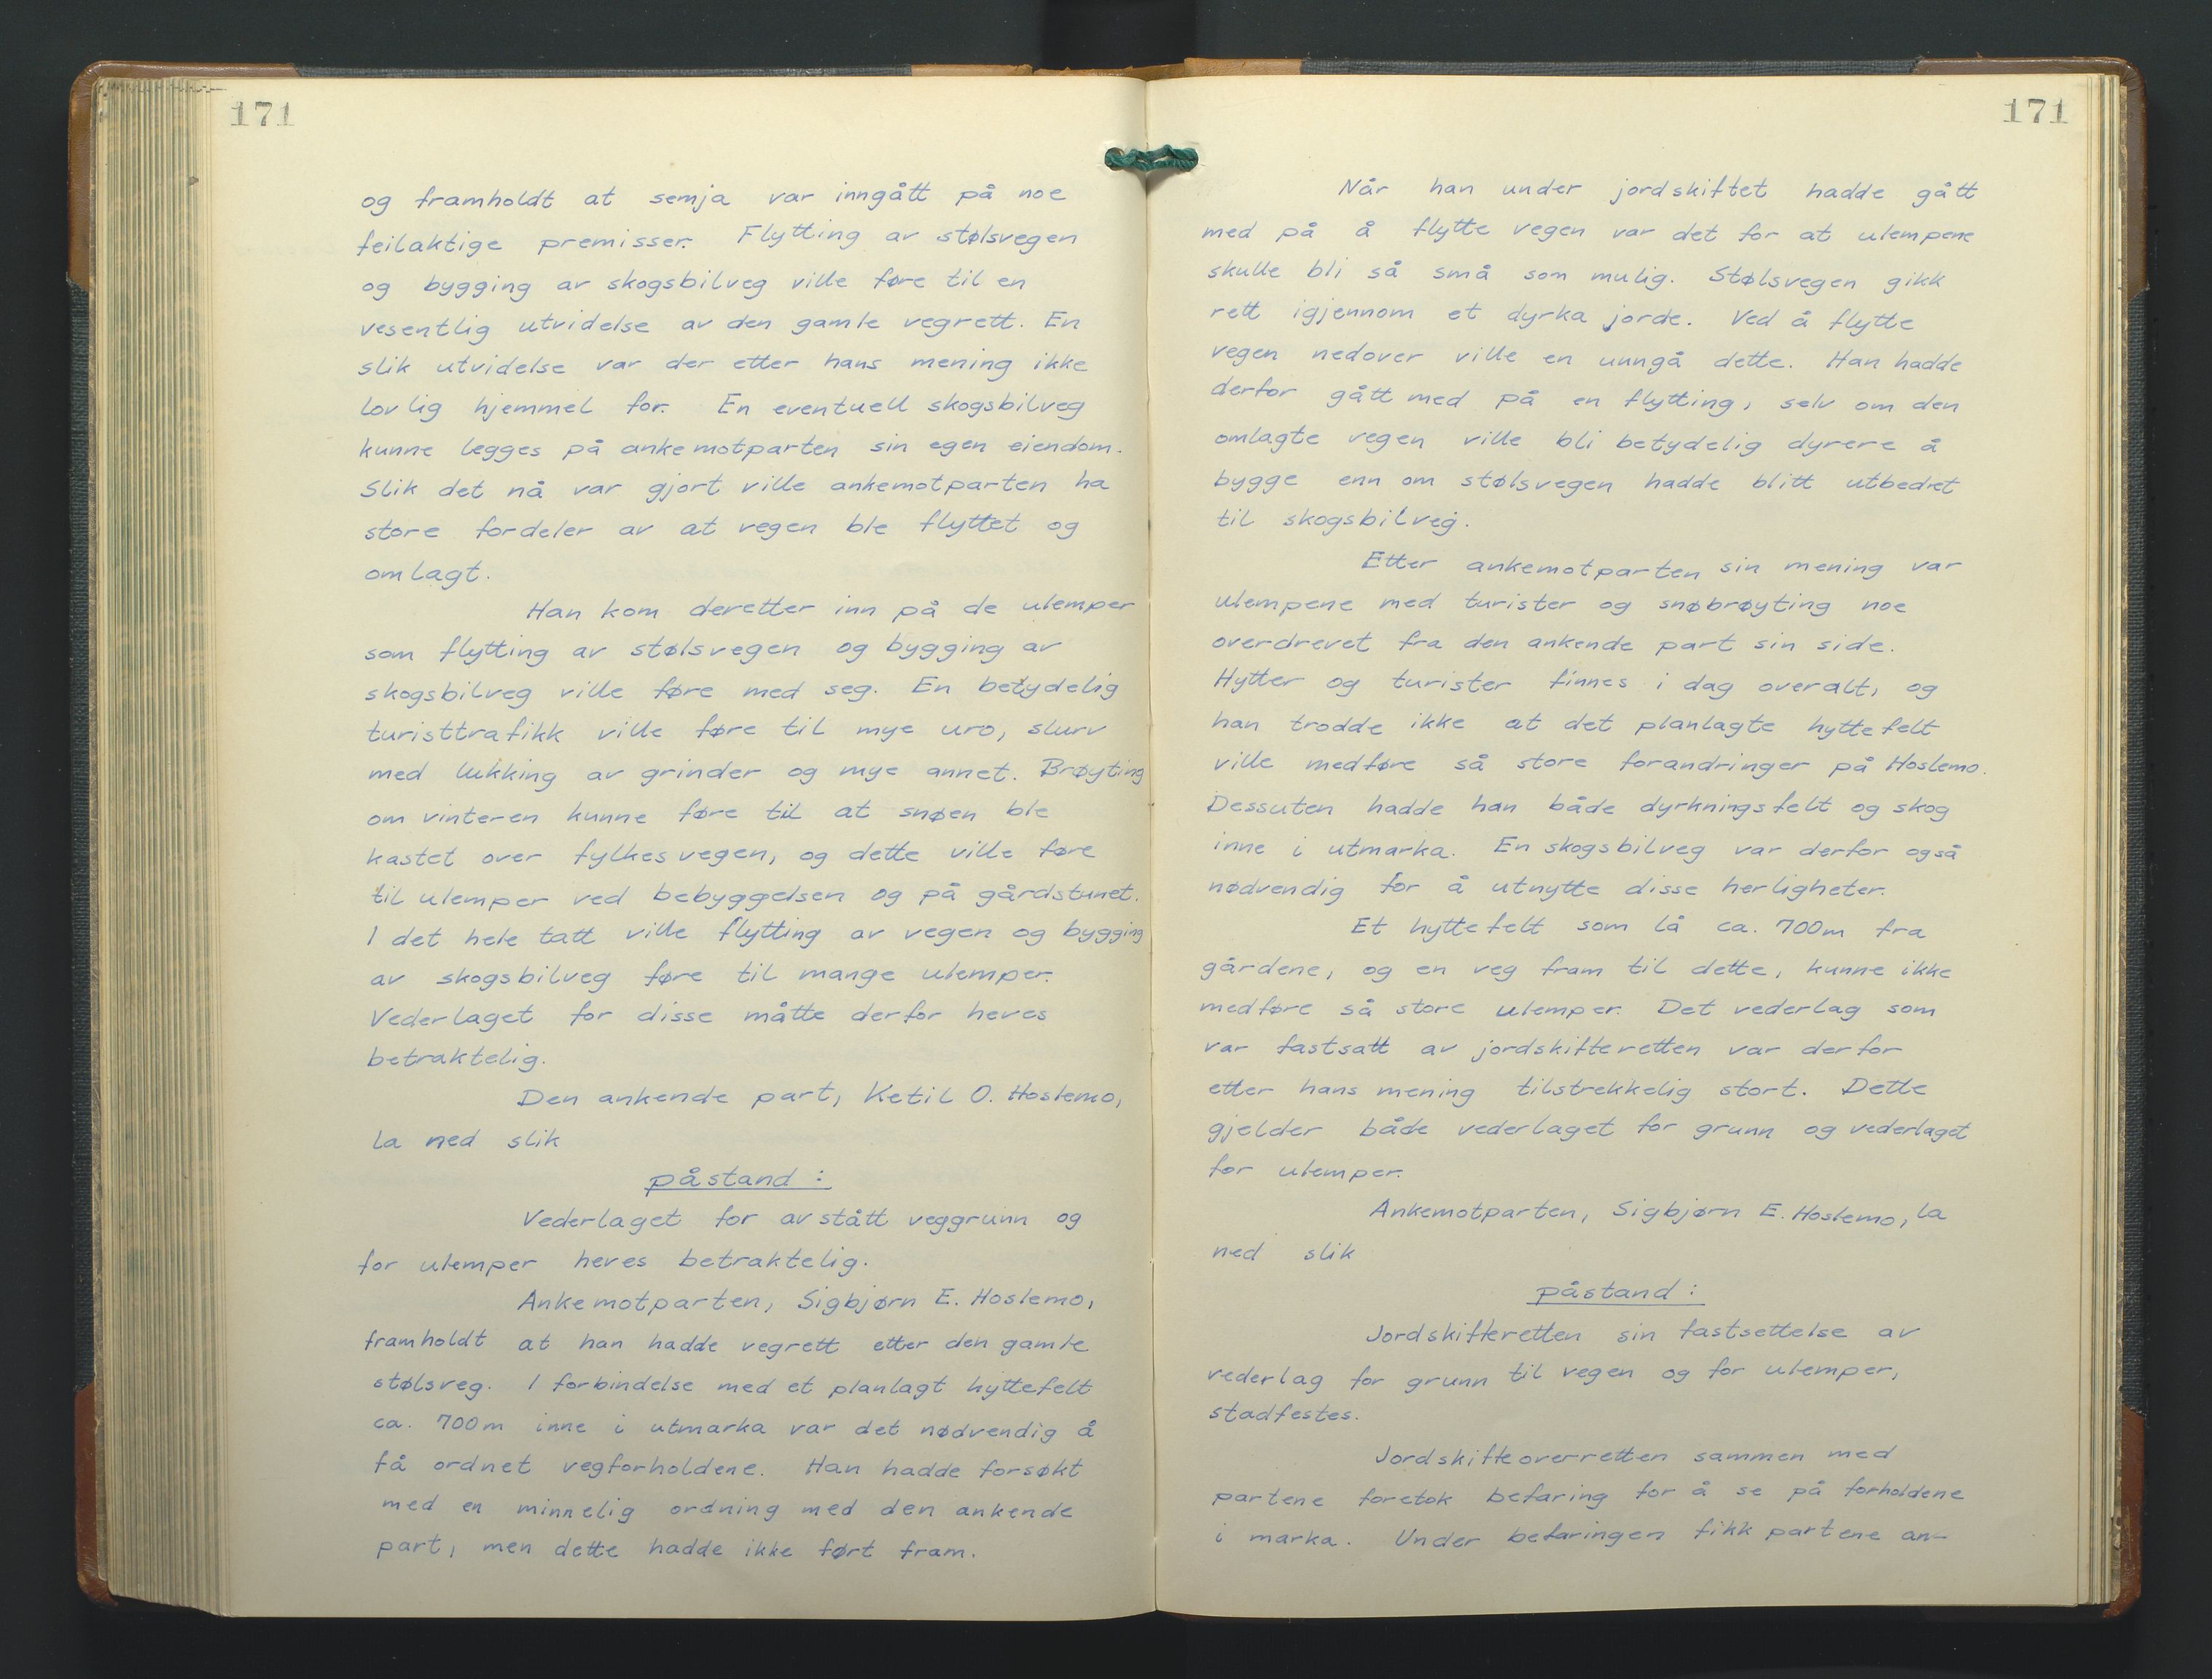 171
og framholdt at semja var inngått på noe
feilaktige premisser. Flytting av stølsvegen
og bygging av skogsbilveg ville føre til en
vesentlig utvidelse av den gamle vegrett. En
slik utvidelse var der etter hans mening ikke
lovlig hjemmel for. En eventuell skogsbilveg
kunne legges på ankemotparten sin egen eiendom.
Slik det nå var gjort ville ankemotparten ha
store fordeler av at vegen ble flyttet og
omlagt.
Han kom deretter inn på de ulemper
som flytting av stølsvegen og bygging av
skogsbilveg ville føre med seg. En betydelig
turisttrafikk ville føre til mye uro, slurv
med lukking av grinder og mye annet. Brøyting
om vinteren kunne føre til at snøen ble
kastet over fylkesvegen, og dette ville føre
til ulemper ved bebyggelsen og på gårdstunet.
I det hele tatt ville flytting av vegen og bygging
av skogsbilveg føre til mange ulemper.
Vederlaget for disse måtte derfor heves
betraktelig.
Den ankende part, Ketil O. Hoslemo,
la ned slik
påstand:
Vederlaget for avstått veggrunn og
for ulemper heves betraktelig.
Ankemotparten, Sigbjørn E. Hoslemo,
framholdt at han hadde vegrett etter den gamle
stølsveg. I forbindelse med et planlagt hyttefelt
ca. 700m inne i utmarka var det nødvendig å
få ordnet vegforholdene. Han hadde forsøkt
med en minnelig ordning med den ankende
part, men dette hadde ikke ført fram.
171
Når han under jordskiftet hadde gått
med på å flytte vegen var det for at ulempene
skulle bli så små som mulig. Stølsvegen gikk
rett igjennom et dyrka jorde. Ved å flytte
vegen nedover ville en unngå dette. Han hadde
derfor gått med på en flytting, selv om den
omlagte vegen ville bli betydelig dyrere å
bygge enn om stølsvegen hadde blitt utbedret
til skogsbilveg.
Etter ankemotparten sin mening var
ulempene med turister og snøbrøyting noe
overdrevet fra den ankende part sin side.
Hytter og turister finnes i dag overalt, og
han trodde ikke at det planlagte hyttefelt
ville medføre så store forandringer på Hoslemo.
Dessuten hadde han både dyrkningsfelt og skog
inne i utmarka. En skogsbilveg var derfor også
nødvendig for å utnytte disse herligheter.
Et hyttefelt som lå ca. 700m fra
gårdene, og en veg fram til dette, kunne ikke
medføre så store ulemper. Det vederlag som
var fastsatt av jordskifteretten var derfor
etter hans mening tilstrekkelig stort. Dette
gjelder både vederlaget for grunn og vederlaget
for ulemper.
Ankemotparten, Sigbjørn E. Hoslemo, la
ned slik
påstand:
Jordskifteretten sin fastsettelse av
vederlag for grunn til vegen og for ulemper,
stadfestes.
Jordskifteoverretten sammen med
partene foretok befaring for å se på forholdene
i marka. Under befaringen fikk partene an-